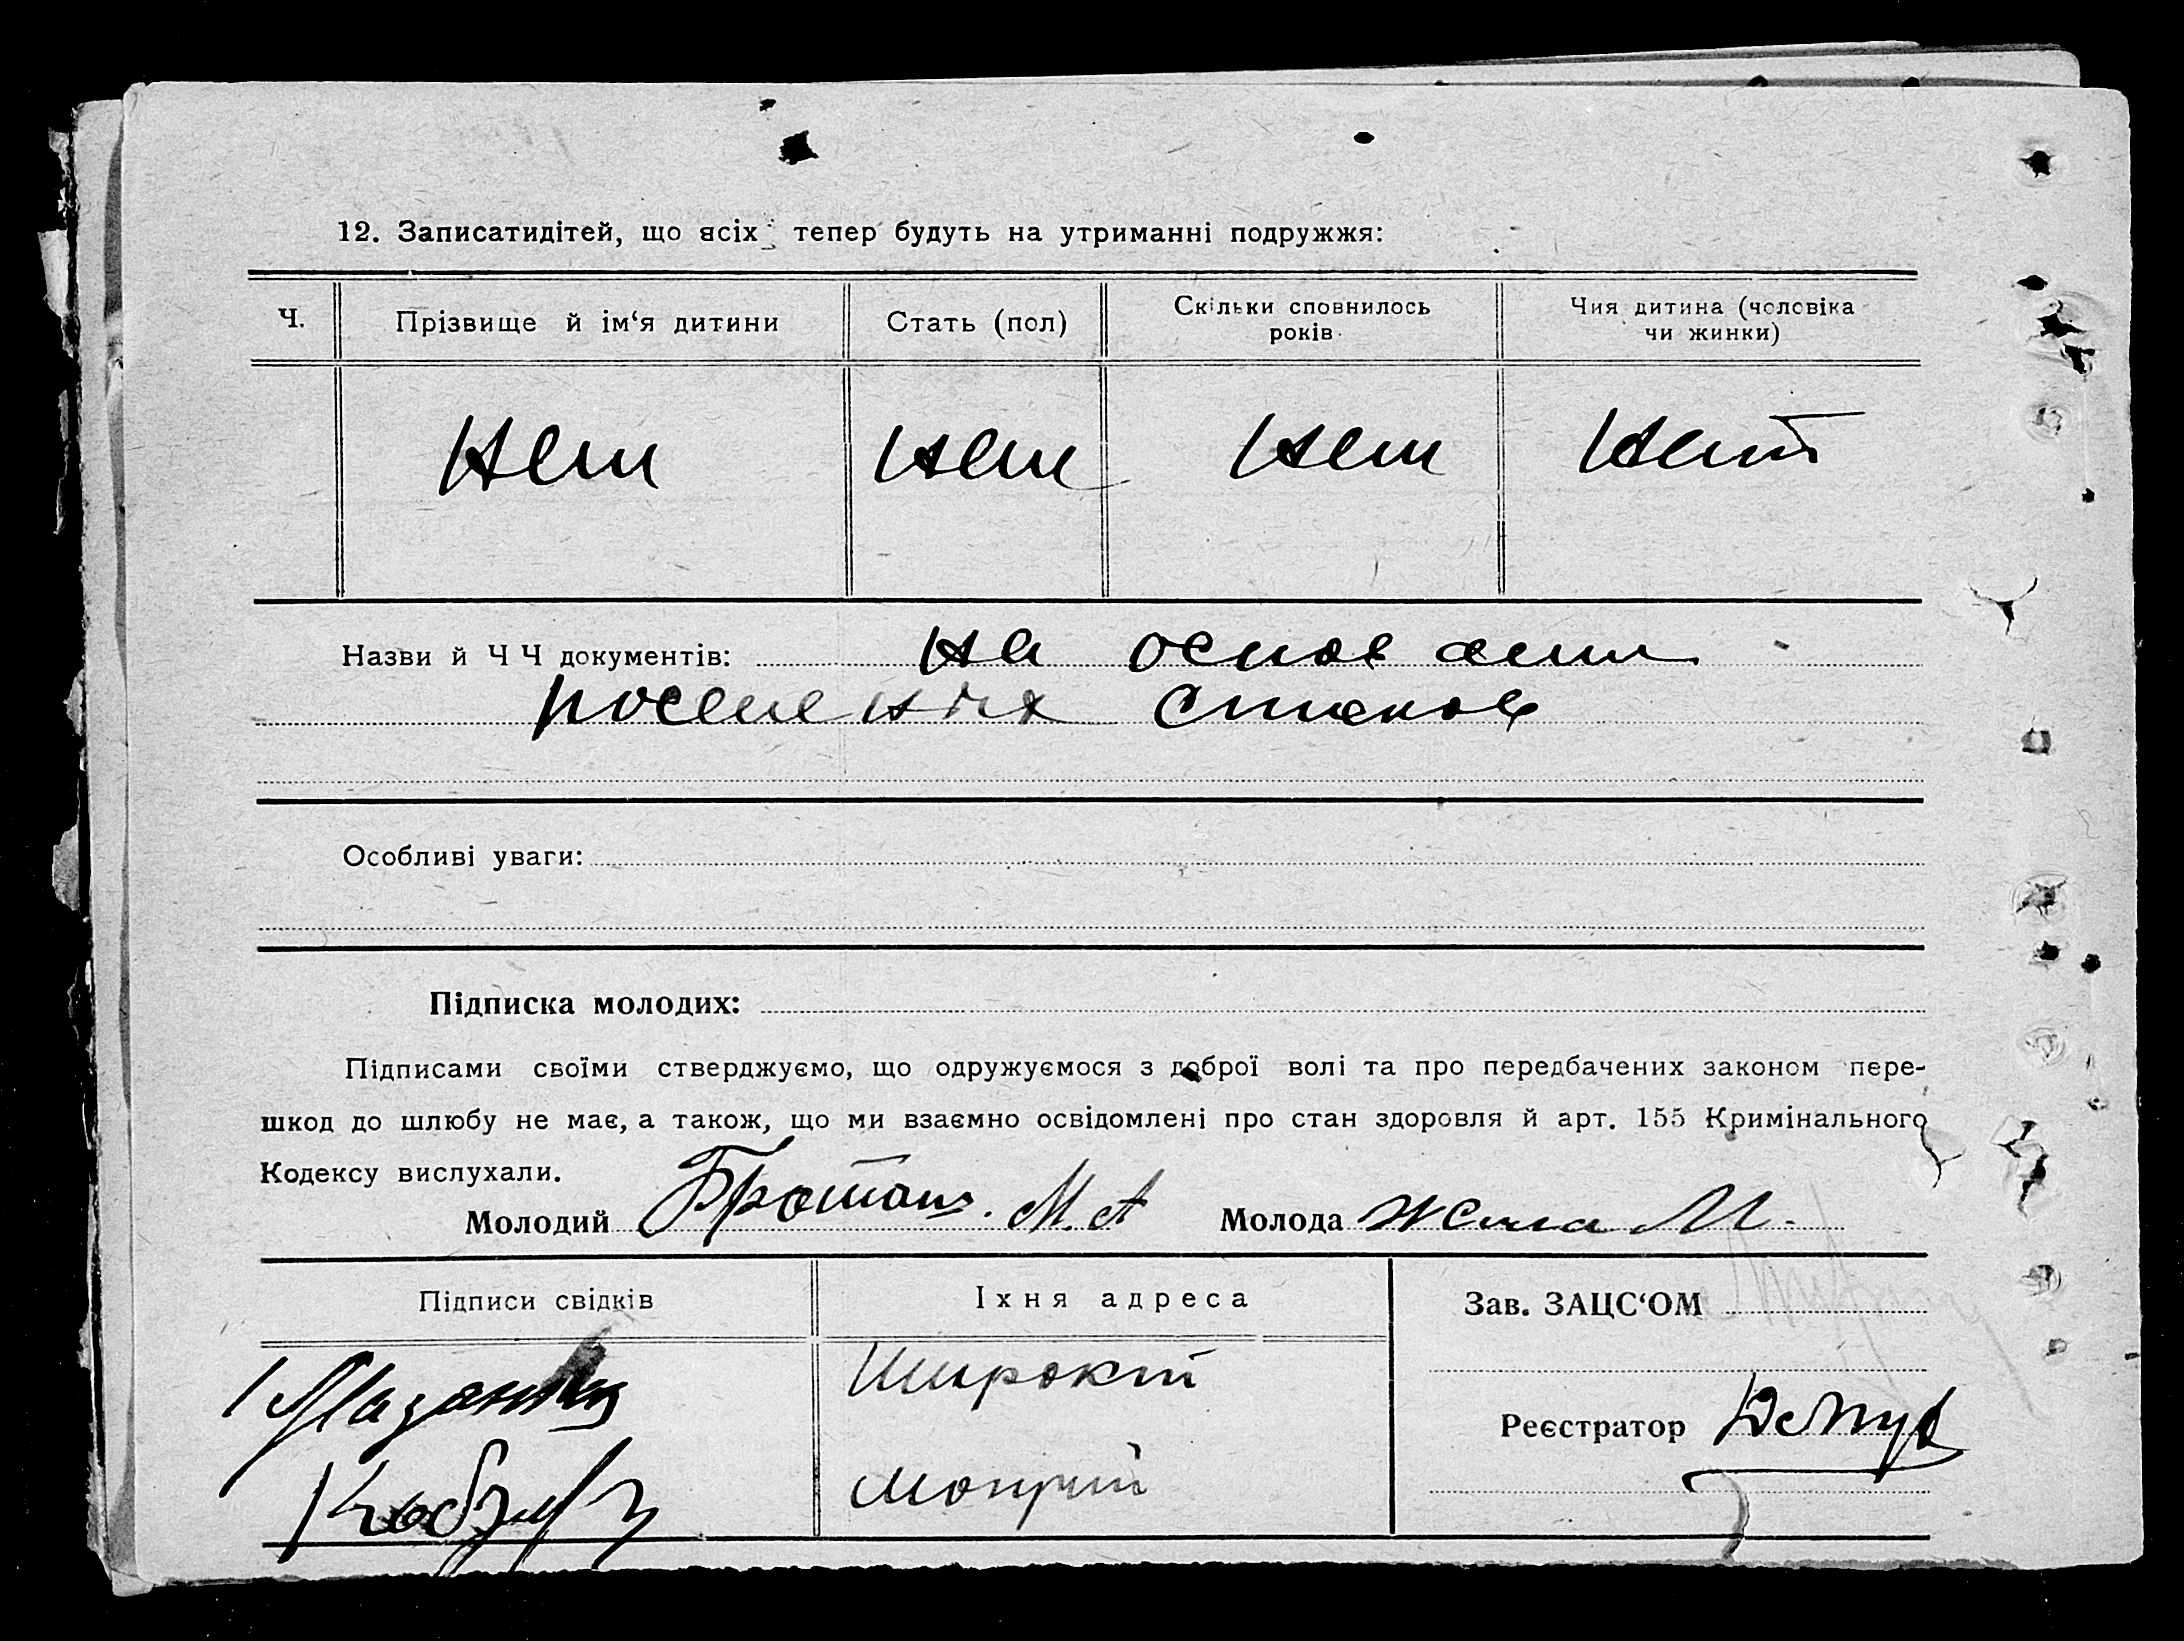 12. Записатидітей, що всіх тепер будуть на утриманні подружжя:
Ч.
Прізвище й ім‘я дитини
Стать (пол)
Скільки сповнилось
років
Чия дитина (чоловіка
чи жинки)
нет нет нет нет
Назви й Ч Ч документів: на основании
списков
Особливі уваги:
Підписка молодих:
Підписами своїми стверджуємо, що одружуємося з доброї волі та про передбачених законом пере-
шкод до шлюбу не має, а також, що ми взаємно освідомлені про стан здоровля й арт. 155 Кримінального
Кодексу вислухали.
Молодий М. А Молода М.
Підписи свідків
Іхня адреса
Зав. ЗАЦС‘ОМ
Реєстратор